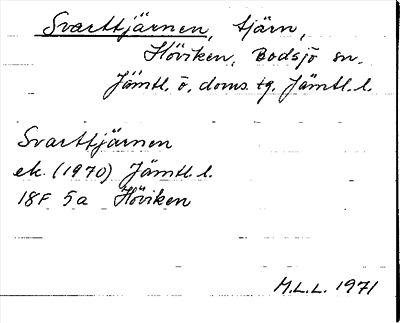 Svarttjärnen, tjärn,
Höviken, Bodsjö sn.
Jämtl. ö. doms. tg. Jämtl. l.
Svarttjärnen
ek. (1970) Jämtl. l.
18F 5a Höviken
M.L.L. 1971